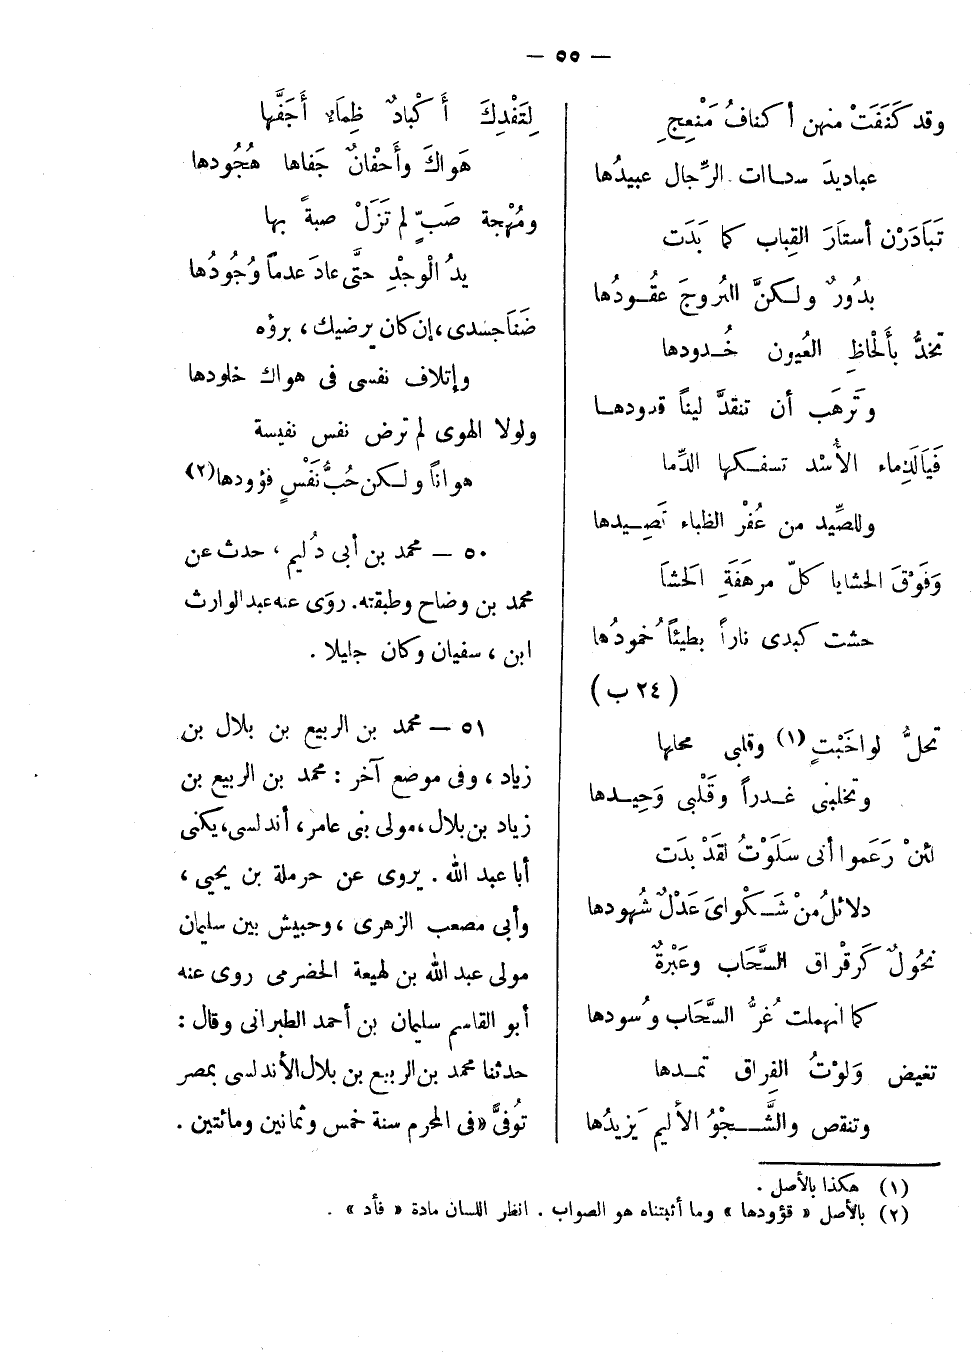 — ٥٥ —
وقد كَنَفَتْ منهن أكنافُ مَنْعِجٍ
عباديدَ سادات الرِّجال عبيدُها
تَبَادَرْن أستارَ القِباب كما بَدَت
بدُورٌ ولكنَّ البُروجَ عقُودُها
تخدُّ بأَلْحاظِ العُيون خُدودها
وتَرهَب أن تنقدَّ ليناً قدودها
فيَالَدِماء الأُسْد تسفكها الدِّما
وللصِّيد من عُفْرِ الظباء تَصِيدها
وَفَوْقَ الحشايا كلّ مرهَفَةِ الحَشاَ
حشت كبدى ناراً بطيئاً خمودُها
(٢٤ ب)
تحلُّ لواخَبْتٍ (١) وقلبى محلها
وتخلبنى غدراً وقَلْبى وَحِيدها
لئنْ زَعَموا أنى سَلَوْتُ لقدْ بدَت
دلائلُ منْ شَكْواىَ عَدْلٌ شُهودها
نحُولٌ كَرقْراق السَّحَاب وعَبْرةٌ
كما انهملت غُرُّ السَّحَاب وسُودها
تغيض وَلوْتُ الفِراق تمدها
وتنقص والشَّجْوُ الأليم يَزيدُها
لِتَفْدِكَ أَكْبادٌ ظِماَء أَجَفَّها
هَواكَ وأَجْفانٌ جَفاها هُجُودها
ومُهْجة صَبٍّ لم تَزَلْ صبةً بها
يدُ الْوجْدِ حتَّى عادَ عدماً وُجُودُها
ضَنَا جسَدى، إن كان يرضيك، برؤه
وإتلاف نفسى فى هواك خلودها
ولولا الهوى لم ترض نفس نفيسة
هواناً ولكن حُبُّ نَفْسٍ فؤودها(٢)
٥٠ — محمد بن أبى دُليم، حدث عن
محمد بن وضاح وطبقته. روَى عنه عبد الوارث
ابن، سفيان وكان جليلا.
٥١ — محمد بن الربيع بن بلال بن
زياد، وفى موضع آخر: محمد بن الربيع بن
زياد بن بلال، مولى بنى عامر، أندلسى، يكنى
أبا عبد الله. يروى عن حرملة بن يحيى،
وأبى مصعب الزهرى، وحبيش بين سليمان
مولى عبد الله بن لهيعة الحضرمى روى عنه
أبو القاسم سليمان بن أحمد الطبرانى وقال:
حدثنا محمد بن الربيع بن بلال الأندلسى بمصر
تُوفىَّ «فى المحرم سنة خمس وثمانين ومائتين.
(١) هكذا بالأصل.
(٢) بالأصل «قؤودها» وما أثبتناه هو الصواب. انظر اللسان مادة «فأد».